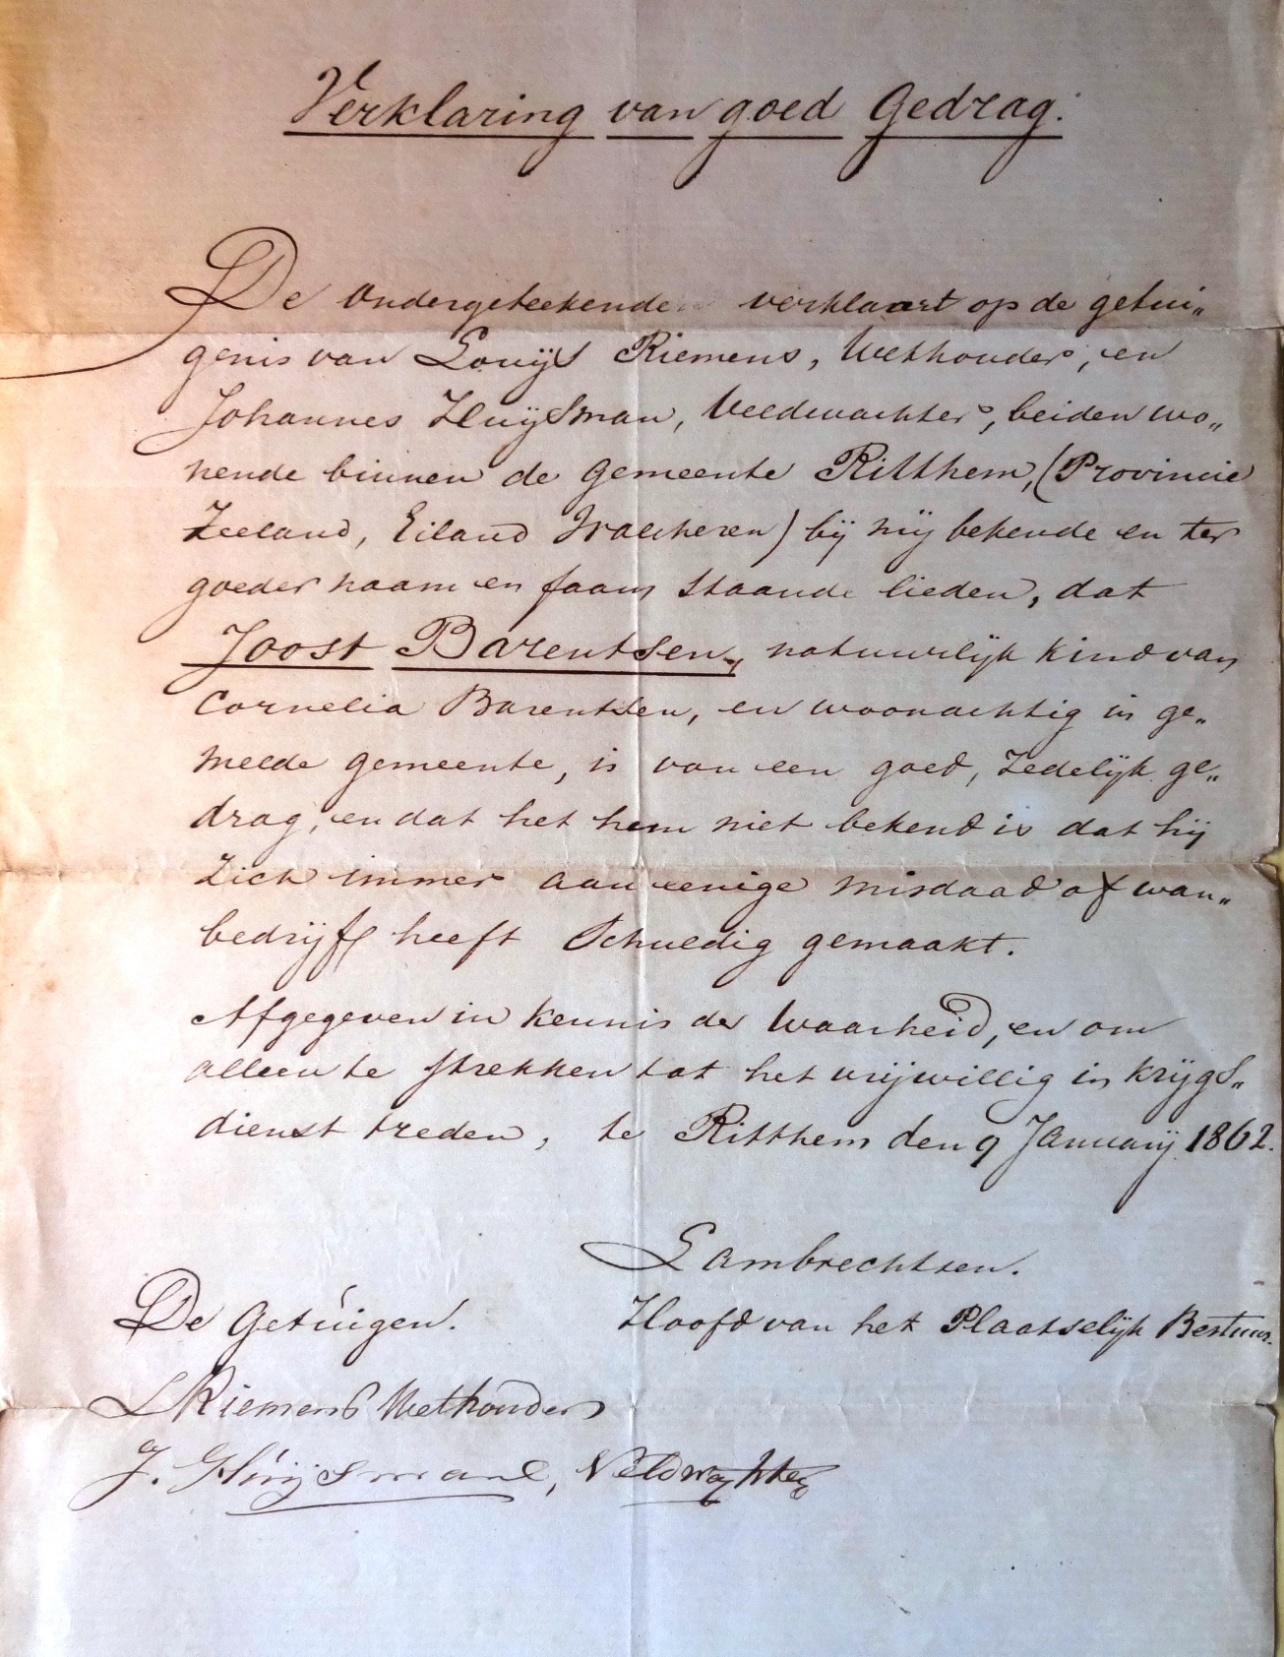 Verklaring van goed Gedrag.
De ondergeteekende verklaart op de getui„
genis van Louijs Riemens, Wethouder, en
Johannes Huijsman, Veldwachter, beiden wo„
nende binnen de gemeente Ritthem, (Provincie
Zeeland, Eiland Walcheren) bij mij bekende en ter
goeder naam en faam staande lieden, dat
Joost Barentsen, natuurlijk kind van
Cornelia Barentsen, en woonachtig in ge„
melde gemeente, is van een goed, zedelijk ge„
drag, en dat het hem niet bekend is dat hij
zich immer aan eenige misdaad of wan„
bedrijf heeft schuldig gemaakt.
Afgegeven in kennis der Waarheid, en om
alleen te strekken tot het vrijwillig in krijgs„
dienst treden, te Ritthem den 9 Januarij 1862.
Lambrechtsen.
De Getuigen. Hoofd van het Plaatselijk Bestuur.
L Riemens Wethouder
J. Huijsman, Veldwachter